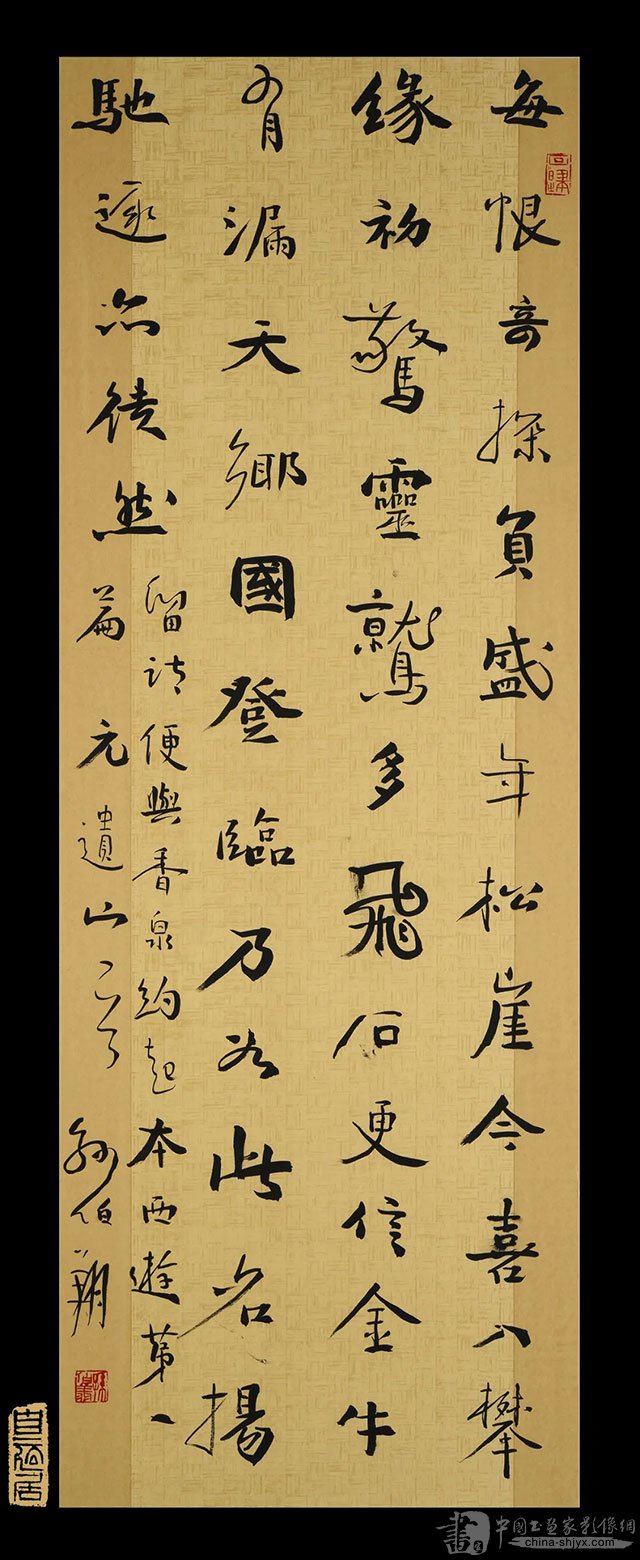 每恨奇探負盛年松崖今喜入攀
緣初驚靈鷲多飛石更信金牛
有漏天鄉國登臨乃如此名揚
馳逐亦徒然
留詩便與香泉約起本西遊第一
篇 元遺山 孫伯翔
中國书画家影像網
china-shjyx.com